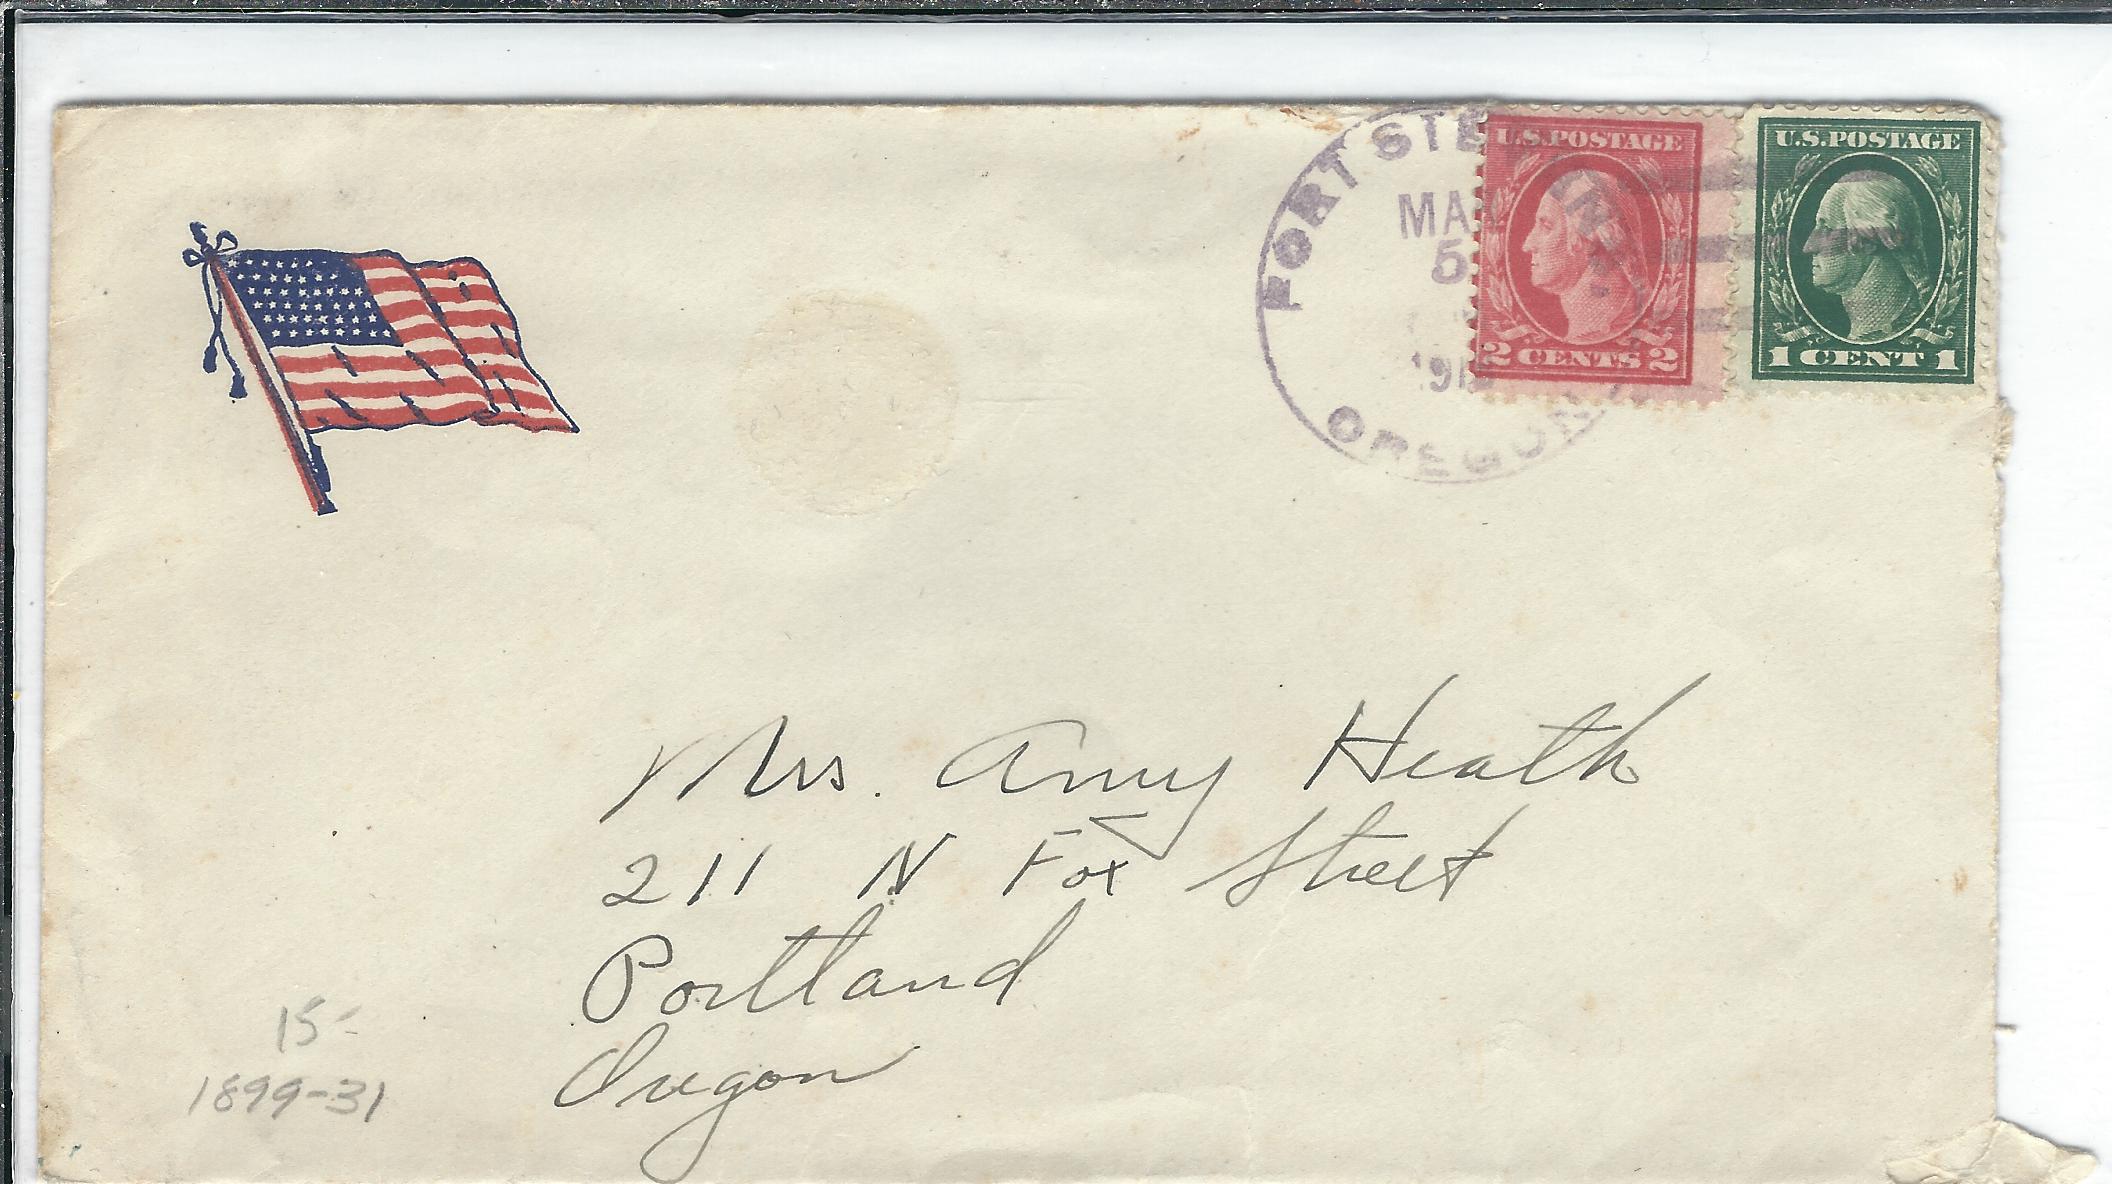 FORT STE
MA
5
191
OREGON
U.S. POSTAGE
2 CENTS 2
U.S. POSTAGE
1 CENT 1
Mrs. Amy Heath
211 N Fox Street
Portland
Oregon
15-
1899-31